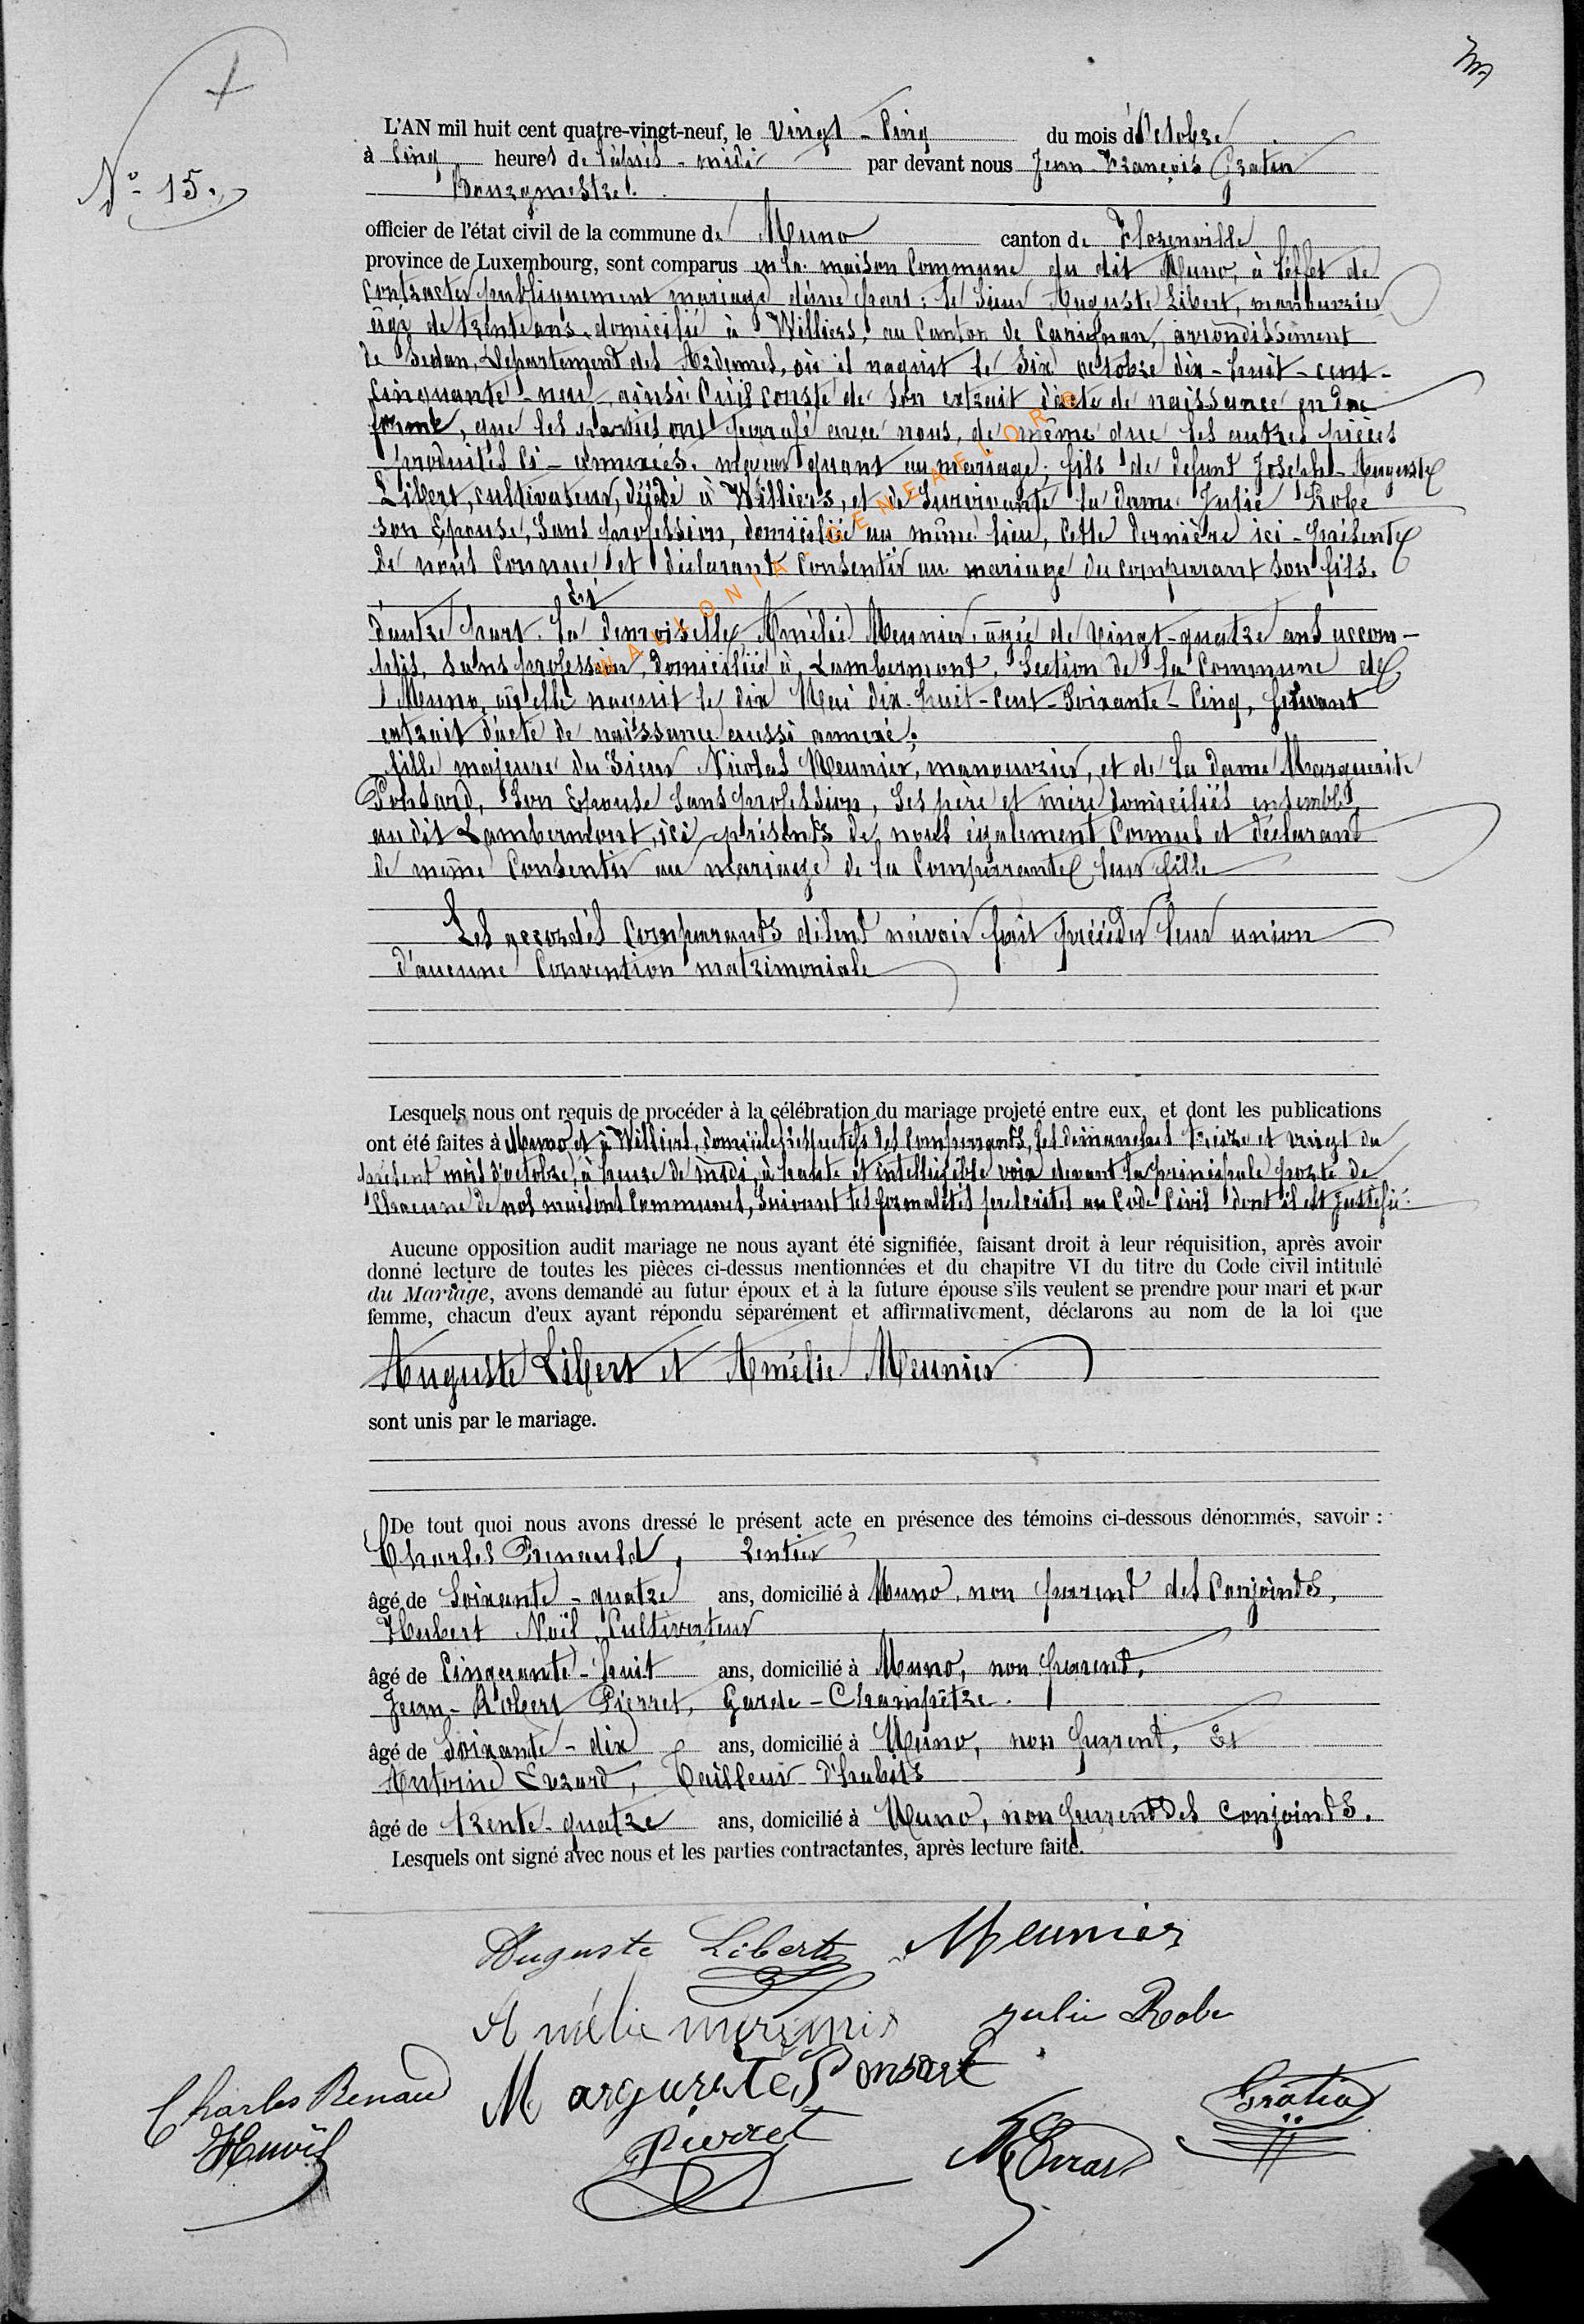 N° 15.
L'AN mil huit cent quatre-vingt-neuf, le Vingt-Cinq du mois d'Octobre
à Cinq heures de l'après-midi par devant nous Jean-François Gratia
Bourgmestre
officier de l'état civil de la commune de Muno canton de Florenville
province de Luxembourg, sont comparus en la maison Commune du dit Muno, à l'effet de
Contracter publiquement mariage d'une part : le Sieur Auguste Libert, manouvrier
âgé de trente ans, domicilié à Williers, au Canton de Carignan, arrondissement
de Sedan, Département des Ardennes, où il naquit le Six octobre dix-huit-cent-
Cinquante-neuf, ainsi qu'il conste de son extrait d'acte de naissance en due
forme, que les parties ont parafé avec nous, de même que les autres pièces
produites ci-annexées, majeur quant au mariage; fils de defunt Joseph-Auguste
Libert, cultivateur, décédé à Williers, et de Survivante la dame Julie Robe
son Epouse, Sans profession, domiciliée au même lieu, Cette dernière ici-présente
de nous Connue et déclarant Consentir au mariage du comparant son fils.
Et
d'autre part la demoiselle Amélie Meunier, âgée de Vingt-quatre ans accom-
plis, Sans profession, domiciliée à Lambermont, Section de la Commune de
Muno, où elle naquit le dix Mai dix-huit-Cent-Soixante-Cinq, suivant
extrait d'acte de naissance aussi annexé;
fille majeure du Sieur Nicolas Meunier, manouvrier, et de la dame Marguerite
Ponsard, Son Epouse Sans profession, Ses père et mère domiciliés ensemble
au dit Lambermont, ici présents de nous également Connus et déclarant
de même Consentir au mariage de la Comparante leur fille
Les accordés Comparants disent n'avoir fait précéder leur union
d'aucune Convention matrimoniale
Lesquels nous ont requis de procéder à la célébration du mariage projeté entre eux, et dont les publications
ont été faites à Muno et à Williers, domiciles respectifs des Comparants, les dimanches treize et vingt du
présent mois d'octobre, à heure de midi, à haute et intelligible voix devant la principale porte de
Chacune de nos maisons Communes, Suivant les formalités prescrites au Code Civil dont il est justifié.
Aucune opposition audit mariage ne nous ayant été signifiée, faisant droit à leur réquisition, après avoir
donné lecture de toutes les pièces ci-dessus mentionnées et du chapitre VI du titre du Code civil intitulé
du Mariage, avons demandé au futur époux et à la future épouse s'ils veulent se prendre pour mari et pour
femme, chacun d'eux ayant répondu séparément et affirmativement, déclarons au nom de la loi que
Auguste Libert et Amélie Meunier
sont unis par le mariage.
De tout quoi nous avons dressé le présent acte en présence des témoins ci-dessous dénommés, savoir :
Charles Renauld, rentier
âgé de Soixante-quatre ans, domicilié à Muno, non parent des Conjoints,
Hubert Noël, Cultivateur
âgé de Cinquante-huit ans, domicilié à Muno, non parent,
Jean-Robert Pierret, Garde-Champêtre.
âgé de Soixante-dix ans, domicilié à Muno, non parent, Et
Antoine Evrard, Tailleur d'habits
âgé de trente-quatre ans, domicilié à Muno, non parent des Conjoints.
Lesquels ont signé avec nous et les parties contractantes, après lecture faite.
Auguste Libert Meunier
Amélie meunier Julie Robe
Charles Renaud Margurite Ponsart Gratia
HNoël Pierret Evrard
WALLONIA-GENEAFLOR